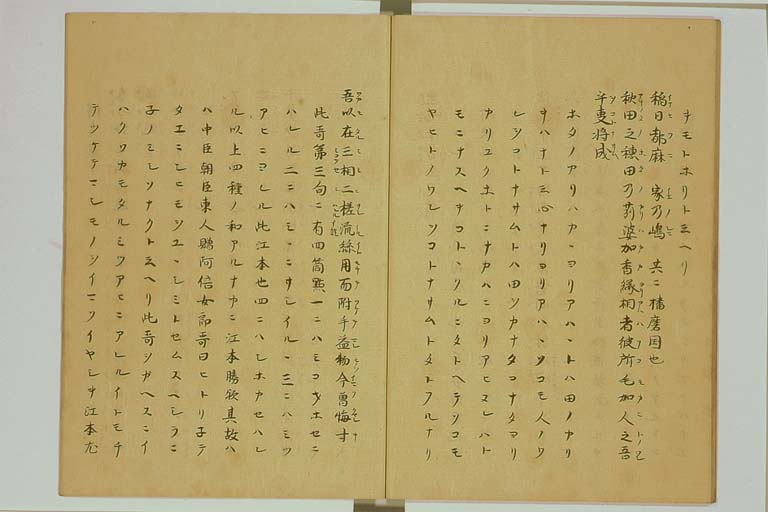 ヲモトホリト云ヘリ
稲日都麻 家乃嶋 共ニ播磨国也
秋田之穂田乃苅婆加香縁相者彼所毛加人之吾
乎事将成
ホタノアリハカヽヨリアハヽトハ田ノカリ
ヲハナト云心ナリヨリアハヽソコモ人ノワ
レヲコトナサムトハ田ツカナタコナタヨリ
カリユクホトニナカハニヨリアヒヌレハト
モニナスヘキコトヽソルニタトヘテソコモ
ヤヒトノワレヲコトナサムトタトフルナリ
吾以在三相二搓流絲用而附手益物今曽悔寸
此哥第三句ニ有四箇點一ニハミコヲホセニ
ハレル二ニハミヽニヲシイルヽ三ニハミツ
アヒニヨレル此江本也四ニハシホカセハレ
ル以上四種ノ和アルナカニ江本勝歟其故ハ
ハ中臣朝臣東人賜阿倍女郎哥曰ヒトリ子テ
タエニシヒモヲユヽシミトセムスヘシラニ
子ノミシソナクト云ヘリ此哥ヲカヘスニイ
ハクワカモタルミツアヒニアレルイトモチ
テツケテマシモノヲイマソイヤシサ江本尤